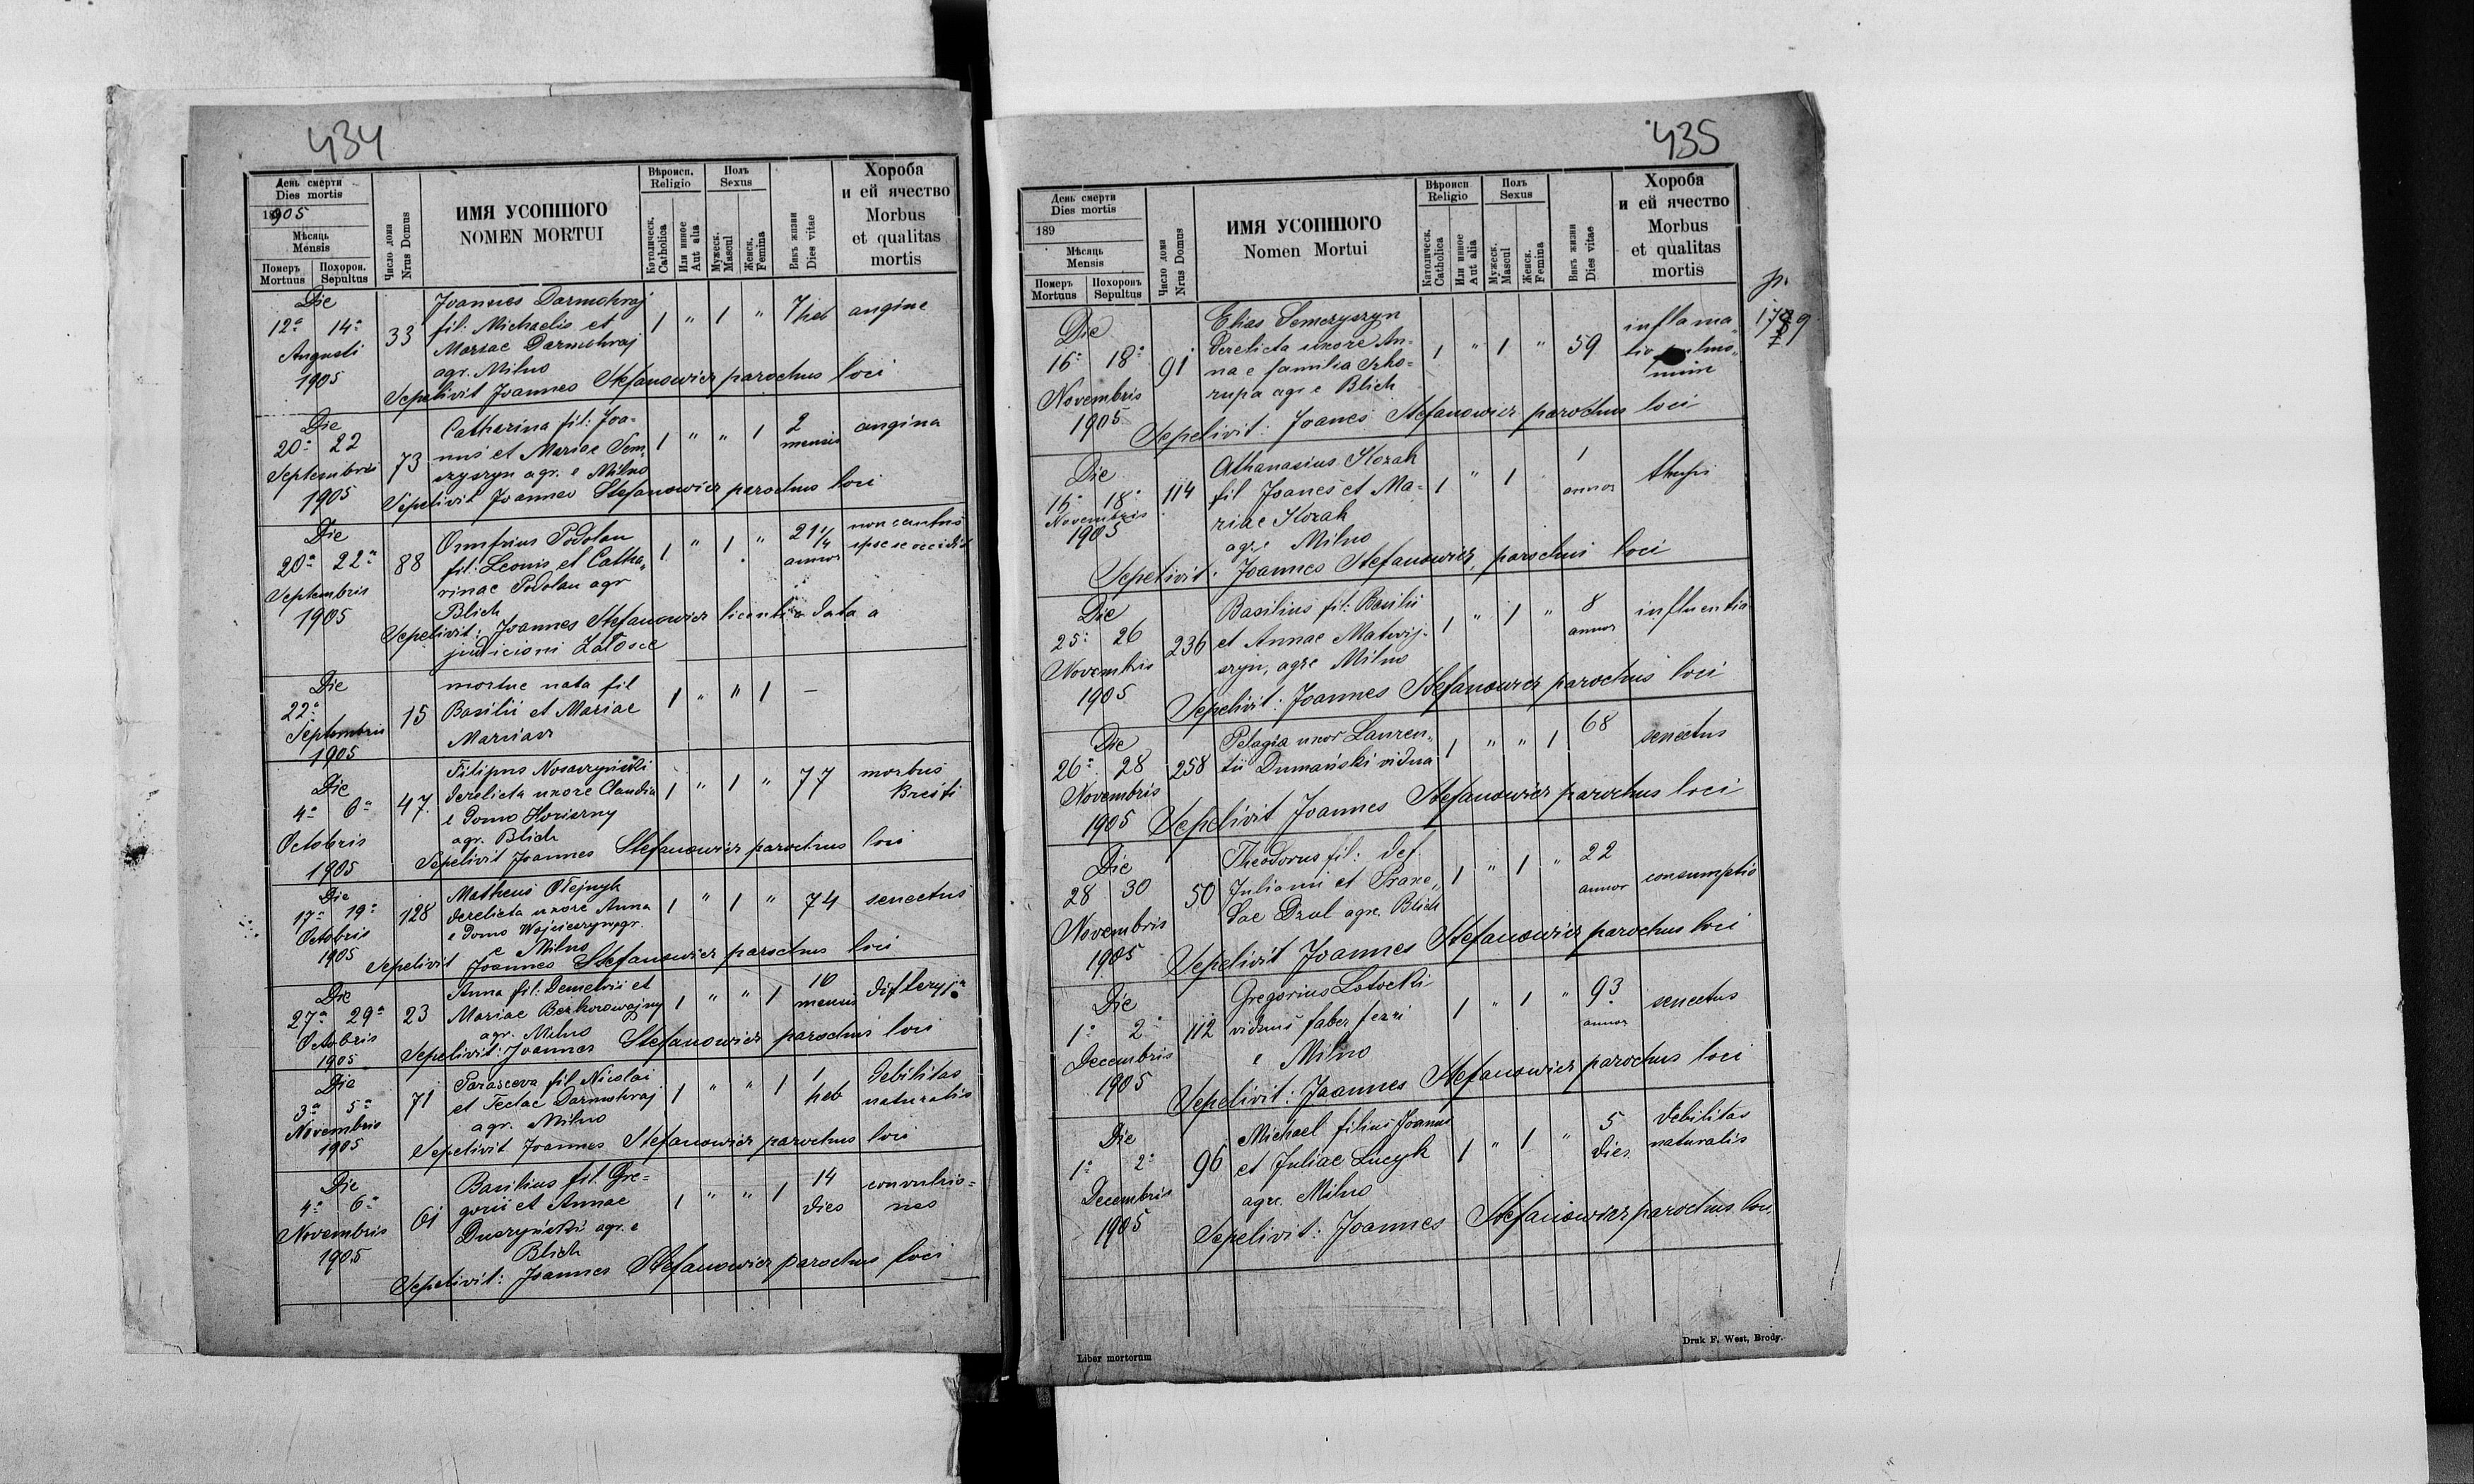 434
День смерти
Dies mortis
1905
Мѣсяць
Mensis
Померъ Похорон.
Mortuus Sepultus
Число дома
Nrus Domus
ИМЯ УСОПШОГО
NOMEN MORTUI
Вѣроисп.
Religio
Католическ.
Catholica
Или инное
Aut alia
Полъ
Sexus
Мужеск.
Mascul
Женск.
Femina
Викъ жизни
Dies vitae
Хороба
и ей ячество
Morbus
et qualitas
mortis
Die
12a 14a
Augusti
1905
33
Joannes Darmohraj
fil: Michaelis et
Mariae Darmohraj
agr. Milno
1 " 1 " 7 heb angine
Sepelivit Joannes Stefanowicz parochus loci
Die
20a 22
Septembris
1905
73
Catharina fil: Joa-
nnis et Mariae Sem
czyszyn agr. e Milno
1 " " 1 2 mensis angina
Sepelivit Joannes Stefanowicz parochus loci
Die
20a 22a
Septembris
1905
88
Onufrius Podolan
fil: Leonis et Catha„
rinae Podolan agr
Blich
1 " 1 " 21 1/4 annor
ipse se occidit
Sepelivit: Joannes Stefanowicz licentia data a
judicioni Załosce
Die
22a
Septembris
1905
15
mortue nata fil
Basilii et Mariae
1 " " 1 —
Die
4a 6a
Octobris
1905
47.
Filipus Nosaczyński
derelicta uxore Claudia
e domo
agr. Blich
1 " 1 " 77 morbus
Sepelivit Joannes Stefanowicz parochus loci
Die
17a 19a
Octobris
1905
128
Matheus Olejnyk
derelicta uxore Anna
e domo
e Milno
1 " 1 " 74 senectus
Sepelivit Joannes Stefanowicz parochus loci
Die
27a 29a
Octobris
1905
23
Anna fil: Demetrii et
Mariae Bezkorowajny
agr. Milno
1 " " 1 10 mensis difteryja
Sepelivit: Joannes Stefanowicz parochus loci
Die
3a 5a
Novembris
1905
71
Parasceva fil Nicolai
et Teclae Darmohraj
agr. Milno
1 " " 1 1 heb debilitas
naturalis
Sepelivit Joannes Stefanowicz parochus loci
Die
4a 6a
Novembris
1905
61
Basilius fil. Gre-
gorii et Annae
Duczyński agr. e
Blich
1 " " 1 14 dies convulsio-
nes
Sepelivit: Joannes Stefanowicz parochus loci
435
День смерти
Dies mortis
189
Мѣсяць
Mensis
Померъ Похоронъ
Mortuus Sepultus
Число дома
Nrus Domus
ИМЯ УСОПШОГО
Nomen Mortui
Вѣроисп
Religio
Католическ.
Catholica
Или инное
Aut alia
Полъ
Sexus
Мужеск.
Mascul
Женск.
Femina
Викъ жизни
Dies vitae
Хороба
и ей ячество
Morbus
et qualitas
mortis
Die
16a 18a
Novembris
1905
91
Elias Semczyszyn
derelicta uxore An-
na e familia Szko-
rupa agr e Blich
1 " 1 " 59 inflama„
tio
Sepelivit: Joanes Stefanowicz parochus loci
Die
16a 18a
Novembris
1905
114
Athanasius Kozak
fil Joanes et Ma-
riae Kozak
agr. e Milno
1 " 1 1 annor
Sepelivit: Joannes Stefanowicz, parochus loci
Die
25a 26
Novembris
1905
236
Basilius fil: Basilii
et Annae Matwij-
szyn, agre Milno
1 " 1 " 8 annor influentia
Sepelivit: Joannes Stefanowicz parochus loci
Die
26a 28
Novembris
1905
258
Pelagia uxor Lauren„
tii Dumański vidua
1 " " 1 68 senectus
Sepelivit Joannes Stefanowicz parochus loci
Die
28 30
Novembris
1905
50
Theodorus fil: def.
Juliani et Praxe„
dae Dzul agre. Blich
1 " 1 " 22 annor consumptio
Sepelivit Joannes Stefanowicz parochus loci
Die
1a 2a
Decembris
1905
112
Gregorius Lotocki
viduus faber ferri
e Milno
1 " 1 " 93 annor senectus
Sepelivit: Joannes Stefanowicz parochus loci
Die
1a 2a
Decembris
1905
96
Michael filius Joannis
et Juliae Lucyk
agre. Milno
1 " 1 " 5 dies debilitas
naturalis
Sepelivit: Joannes Stefanowicz parochus loci.
Liber mortorum
Druk F. West, Brody.